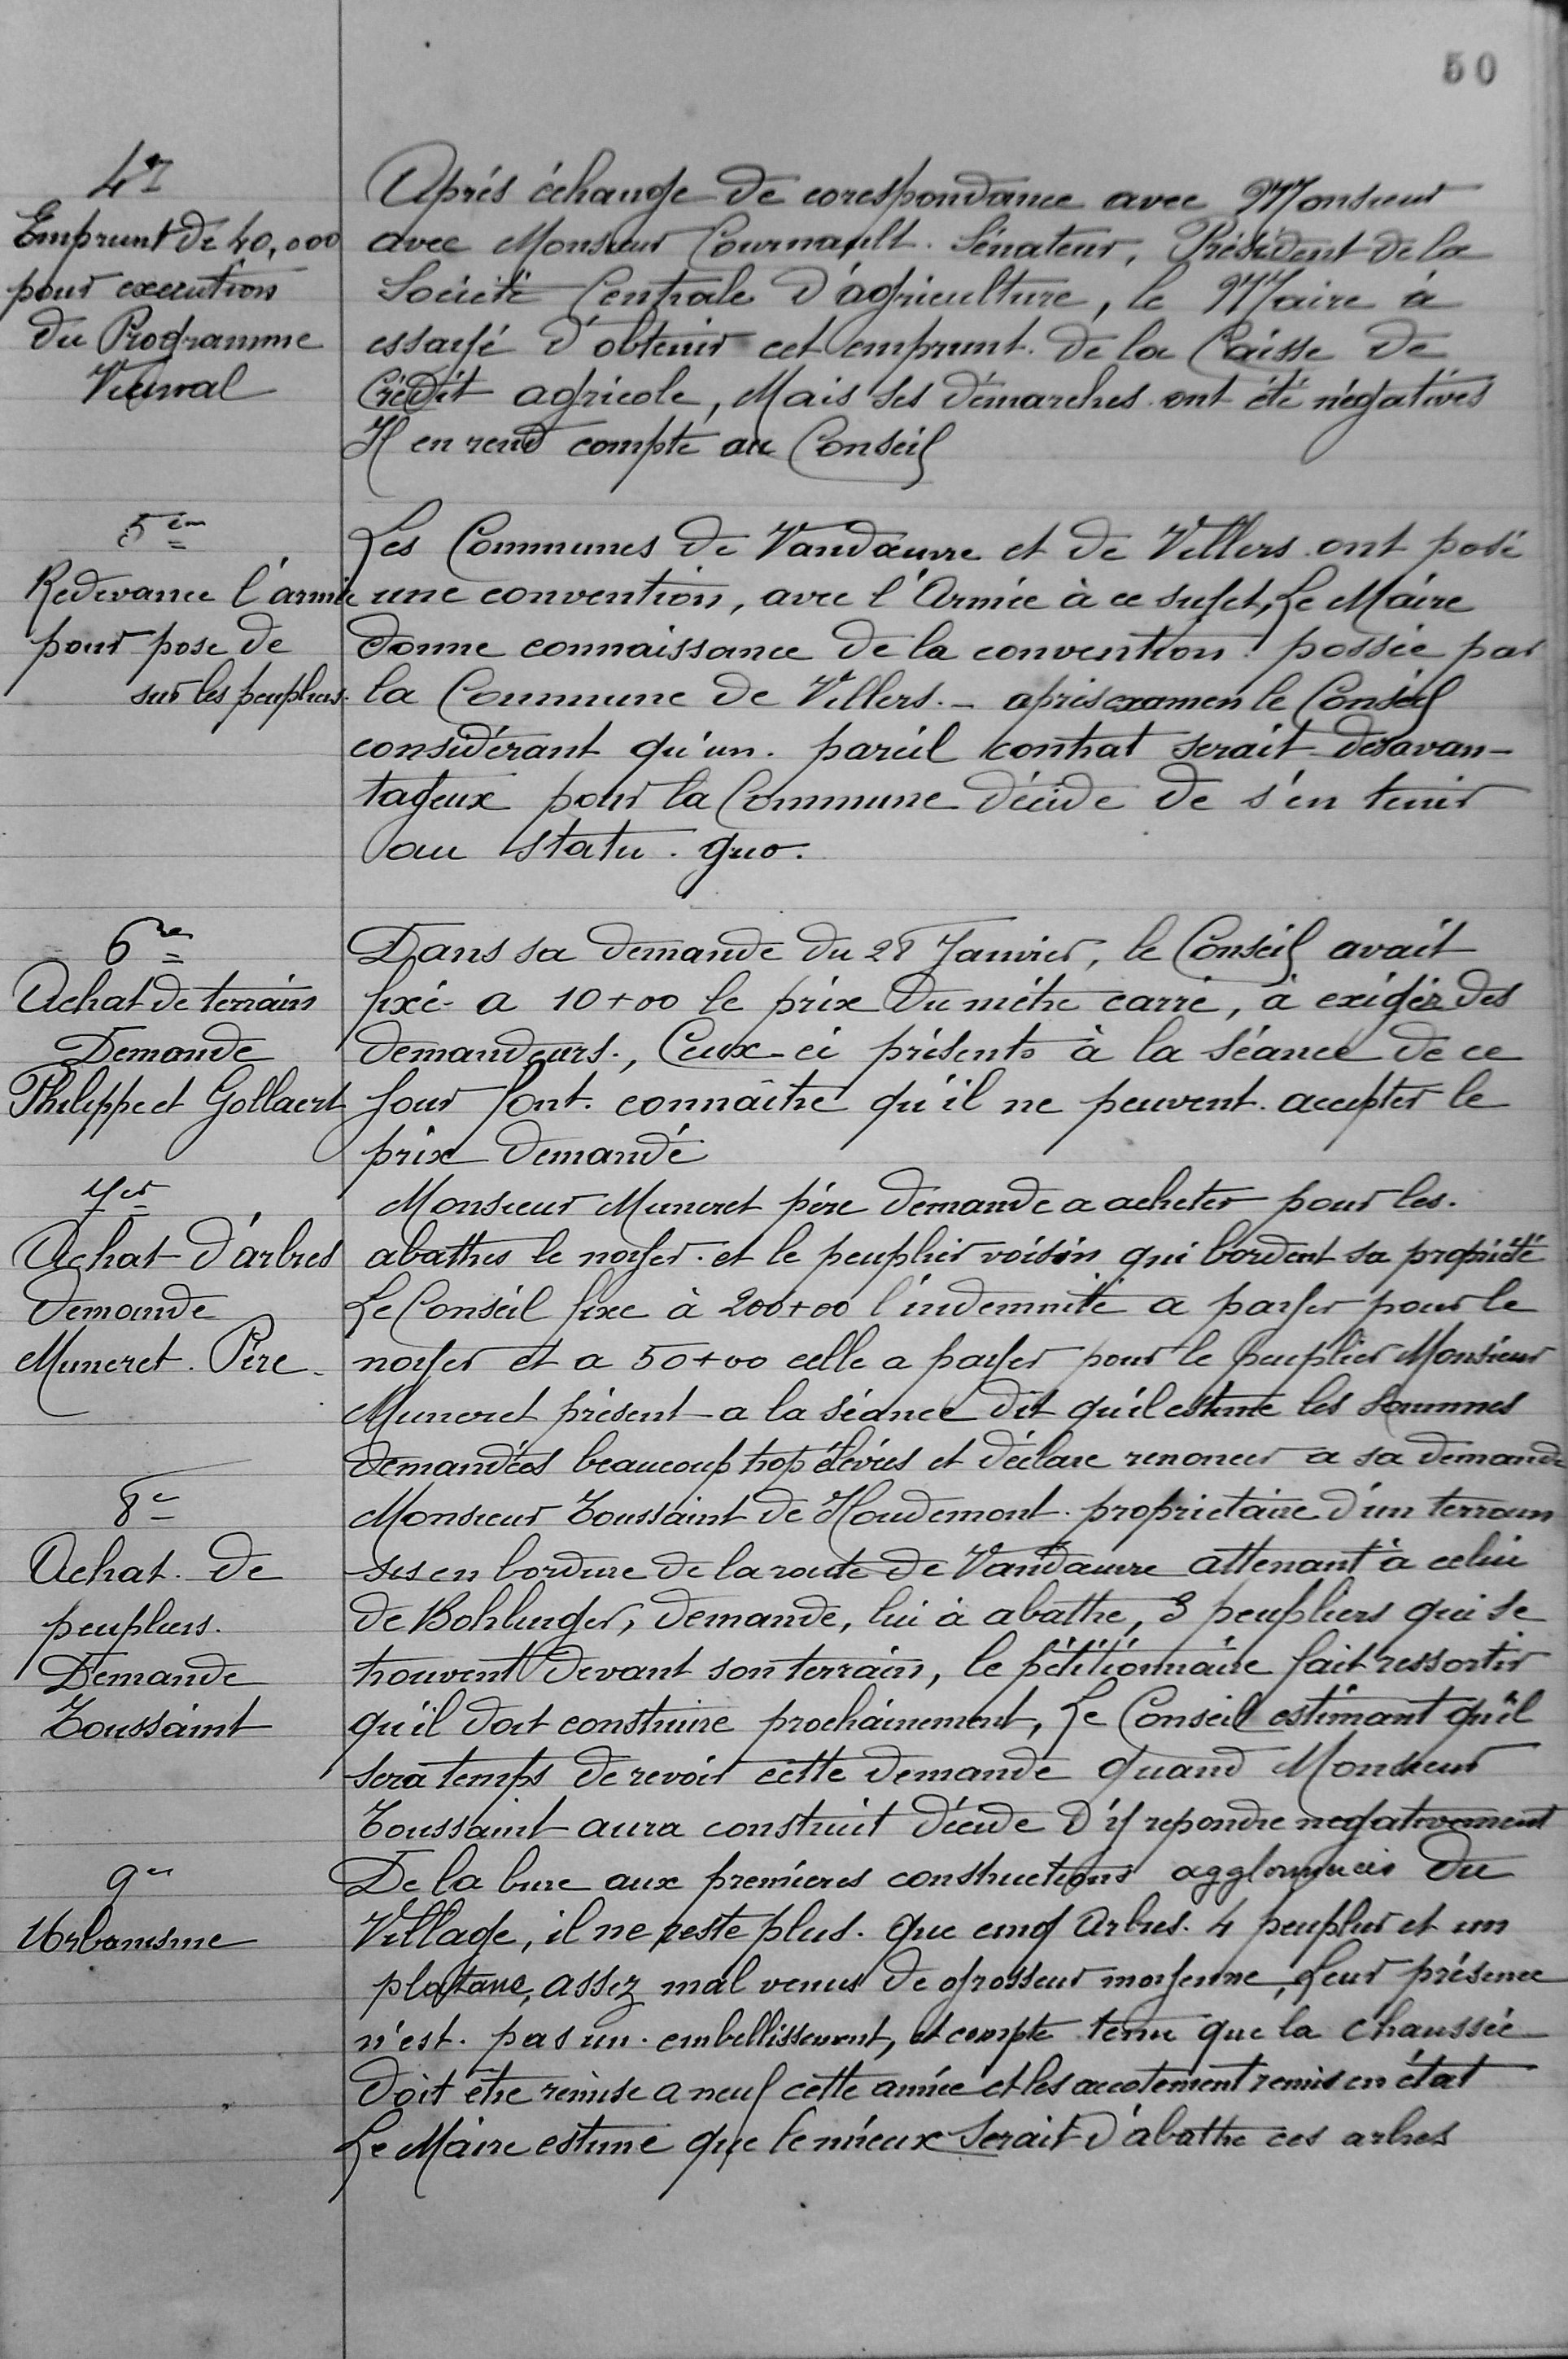 50
4e
Emprunt de 40,000
pour execution
du Programme
Vicinal
Aprés échange de corespondance avec Monsieur
avec Monsieur Cournault. Sénateur, Président de la
Société Centrale d'agriculture, le Maire à
essayé d'obtenir cet emprunt. de la Caisse de
Crédit agricole, Mais ses démarches ont été négatives
Il en rend compte au Conseil
5em
Redevance l'armée
pour pose de
sur les peupliers.
Les Communes de Vandœuvre et de Villers ont posé
une convention, avec l'Armée à ce sujet, Le Maire
donne connaissance de la convention possée par
la Commune de Villers. - apris examen le Conseil
considérant qu'un. pareil contrat serait désavan-
tageux pour la Commune décide de s'en tenir
au statu. quo.
6em
Achat de terrains
Demande
Philippe et Gollaert
Dans sa demande du 28 Janvier, le Conseil avait
fixé a 10+00 le prix du métre carré, à exiger des
demandeurs., Ceux-ci présents à la séance de ce
jour font. connaître qu'il ne peuvent. accepter le
prix demandé
7em
Achat d'arbres
Demande
Muneret. Père.
Monsieur Muneret pére demande a acheter pour les.
abattres le noyer. et le peuplier voisin qui bordent sa propriété
Le Conseil fixe à 200+00 l'indemnité a payer pour le
noyer et a 50+00 celle a payer pour le peuplier Monsieur
Muneret présent a la séance dit qu'il estime les sommes
demandées beaucoup trop élévées et déclare renoncer a sa demande
8e
Achat. de
peupliers.
Demande
Toussaint
Monsieur Toussaint de Houdemont. proprietaire d'un terrain
sis en bordure de la route de Vandœuvre attenant à celui
de Bohlinger, demande, lui à abattre, 3 peupliers qui se
trouvent devant son terrain, le pétitionnaire fait ressortir
qu'il doit construire prochainement, Le Conseil estimant qu'il
sera temps de revoir cette demande quand Monsieur
Toussaint aura construit décide d'y repondre negativement
9em
Urbanisme
De la bure aux premières constructions agglomerées du
Village, il ne reste plus. que cinq Arbres. 4 peuplier et un
platane, assez mal venus de grosseur moyenne, Leur présence
n'est. pas un. embellissement, et compte tenu que la chaussée
doit être remise a neuf cette année et les accotement remis en état
Le Maire estime que le mieux serait d'abattre ces arbres